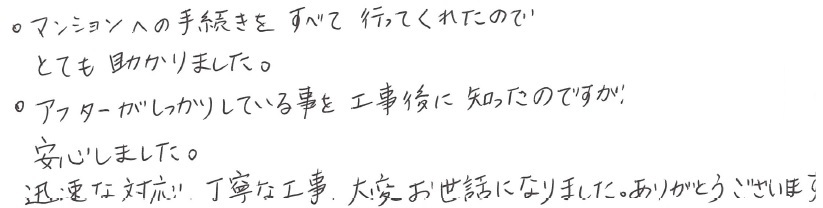 。マンションへの手続きをすべて行ってくれたので
とても助かりました。
。アフターがしっかりしている事を工事後に知ったのですが、
安心しました。
迅速な対応!! 丁寧な工事、大変お世話になりました。ありがとうございます